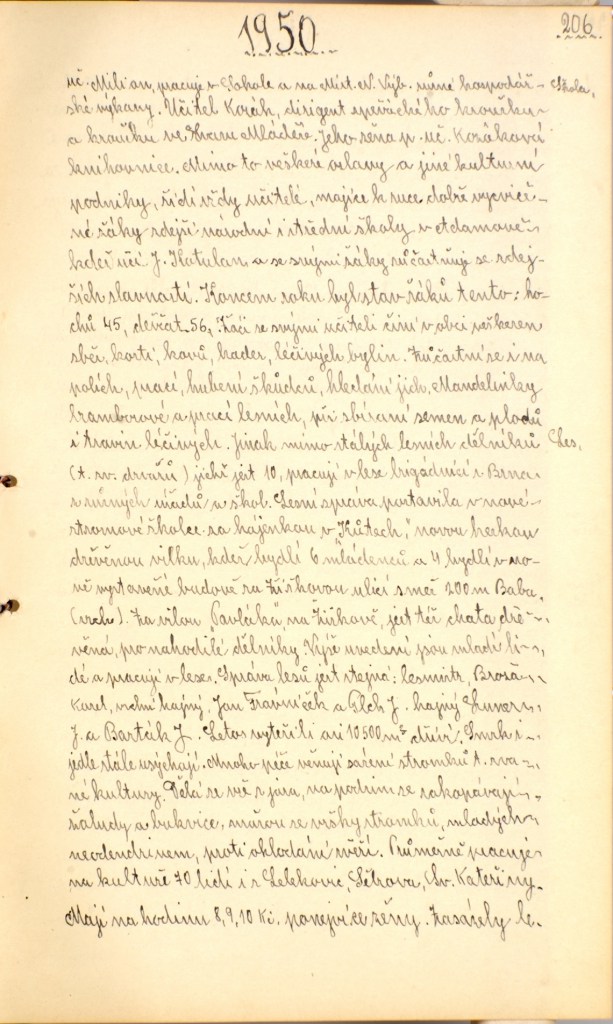 1950
206
uč. Milion, pracuje v Sokole a na Míst. N. Výb. různé hospodář-
Škola,
ské výkazy. Učitel Kozák, dirigent spěváckého kroužku
a kroužku ve Svazu Mládeže. Jeho žena p. uč. Kozáková
knihovnice. Mimo to veškeré oslavy a jiné kulturní
podniky, řídí vždy učitelé, majíce k ruce dobře vycviče-
né žáky zdejší národní i střední školy v Adamově
kdež učí J. Katulan a se svými žáky zúčastňuje se zdej-
ších slavností. Koncem roku byl stav žáků tento: ho-
chů 45, děvčat 56, Žáci se svými učiteli činí v obci veškeren
sběr, kostí, kovů, hader, léčivých bylin. Zúčastní se i na
polích, prací, hubení škůdců, hledání jich, Mandelinky
bramborové a prací lesních, při sbírání semen a plodů
i travin léčivých. Jinak mimo stálých lesních dělníků
Les,
(t. zv. drvařů) jichž jest 10, pracují v lese brigádníci z Brna
z různých úřadů a škol. Lesní správa, postavila v nové
stromové školce za hájenkou v "Kútech", novou hezkou
dřevěnou vilku, kdež bydlí 6 mládenců a 4 bydlí v no-
vě vystavěné budově za Žižkovou ulicí směr 200 m Baba,
(vrch). Za vilou "Pavláků" na Žižkově, jest též chata dře-
věná, pro nahodilé dělníky. Výše uvedení jsou mladí li-
dé a pracují v lese. Správa lesů jest stejná: lesmistr, Broža
Karel, vrchní hajný, Jan Trávníček a Pilch J. hajný
J. a Barták J. Letos vytěžili asi 10500 m³ dříví. Smrk i
jedle stále usýchají. Mnoho péče věnují sázení stromků t. zva-
né kultury. Dělá se vše z jara, na podzim se zakopávají
žaludy a bukvice, mažou se vršky stromků, mladých
neodendrinem, proti ohlodání zvěří. Průměrně pracuje
na kultuře 70 lidí i z Lelekovic, Šebrova, Sv. Kateřiny.
Mají na hodinu 8, 9, 10 Kč. ponejvíce ženy. Zasázely le-